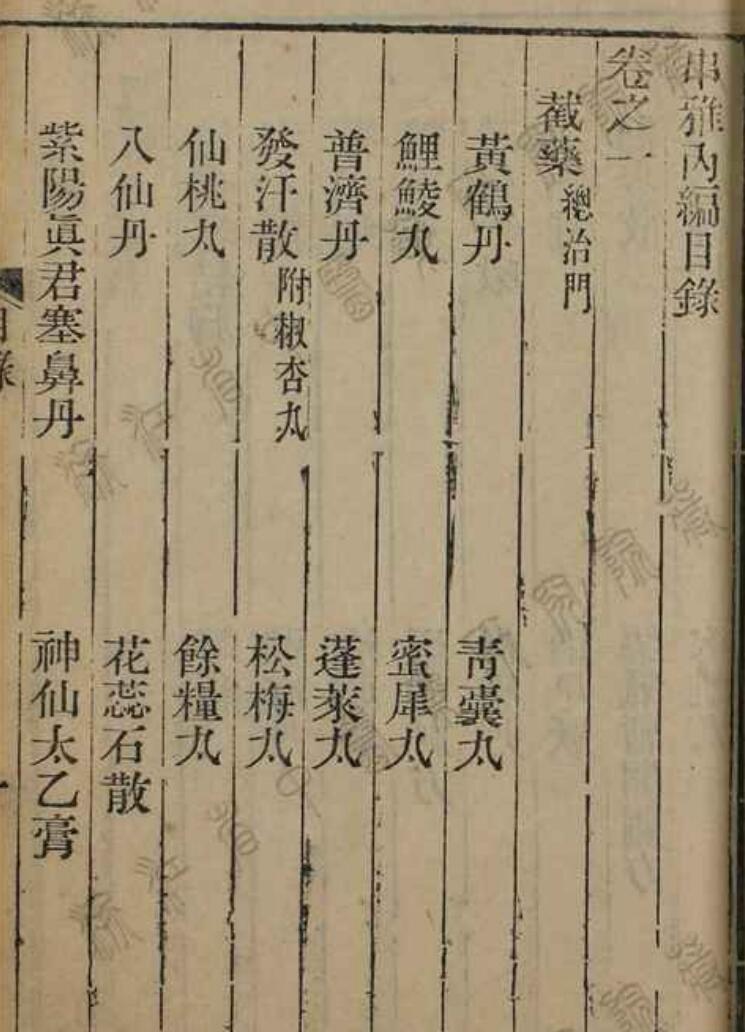 串雅內編目錄
卷之一
截藥 總治門
黃鶴丹 青囊丸
鯉鯪丸 蜜犀丸
普濟丹 蓬萊丸
發汗散 附椒杏丸 松梅丸
仙桃丸 餘糧丸
八仙丹 花蕊石散
紫陽眞君塞鼻丹 神仙太乙膏
目錄
一